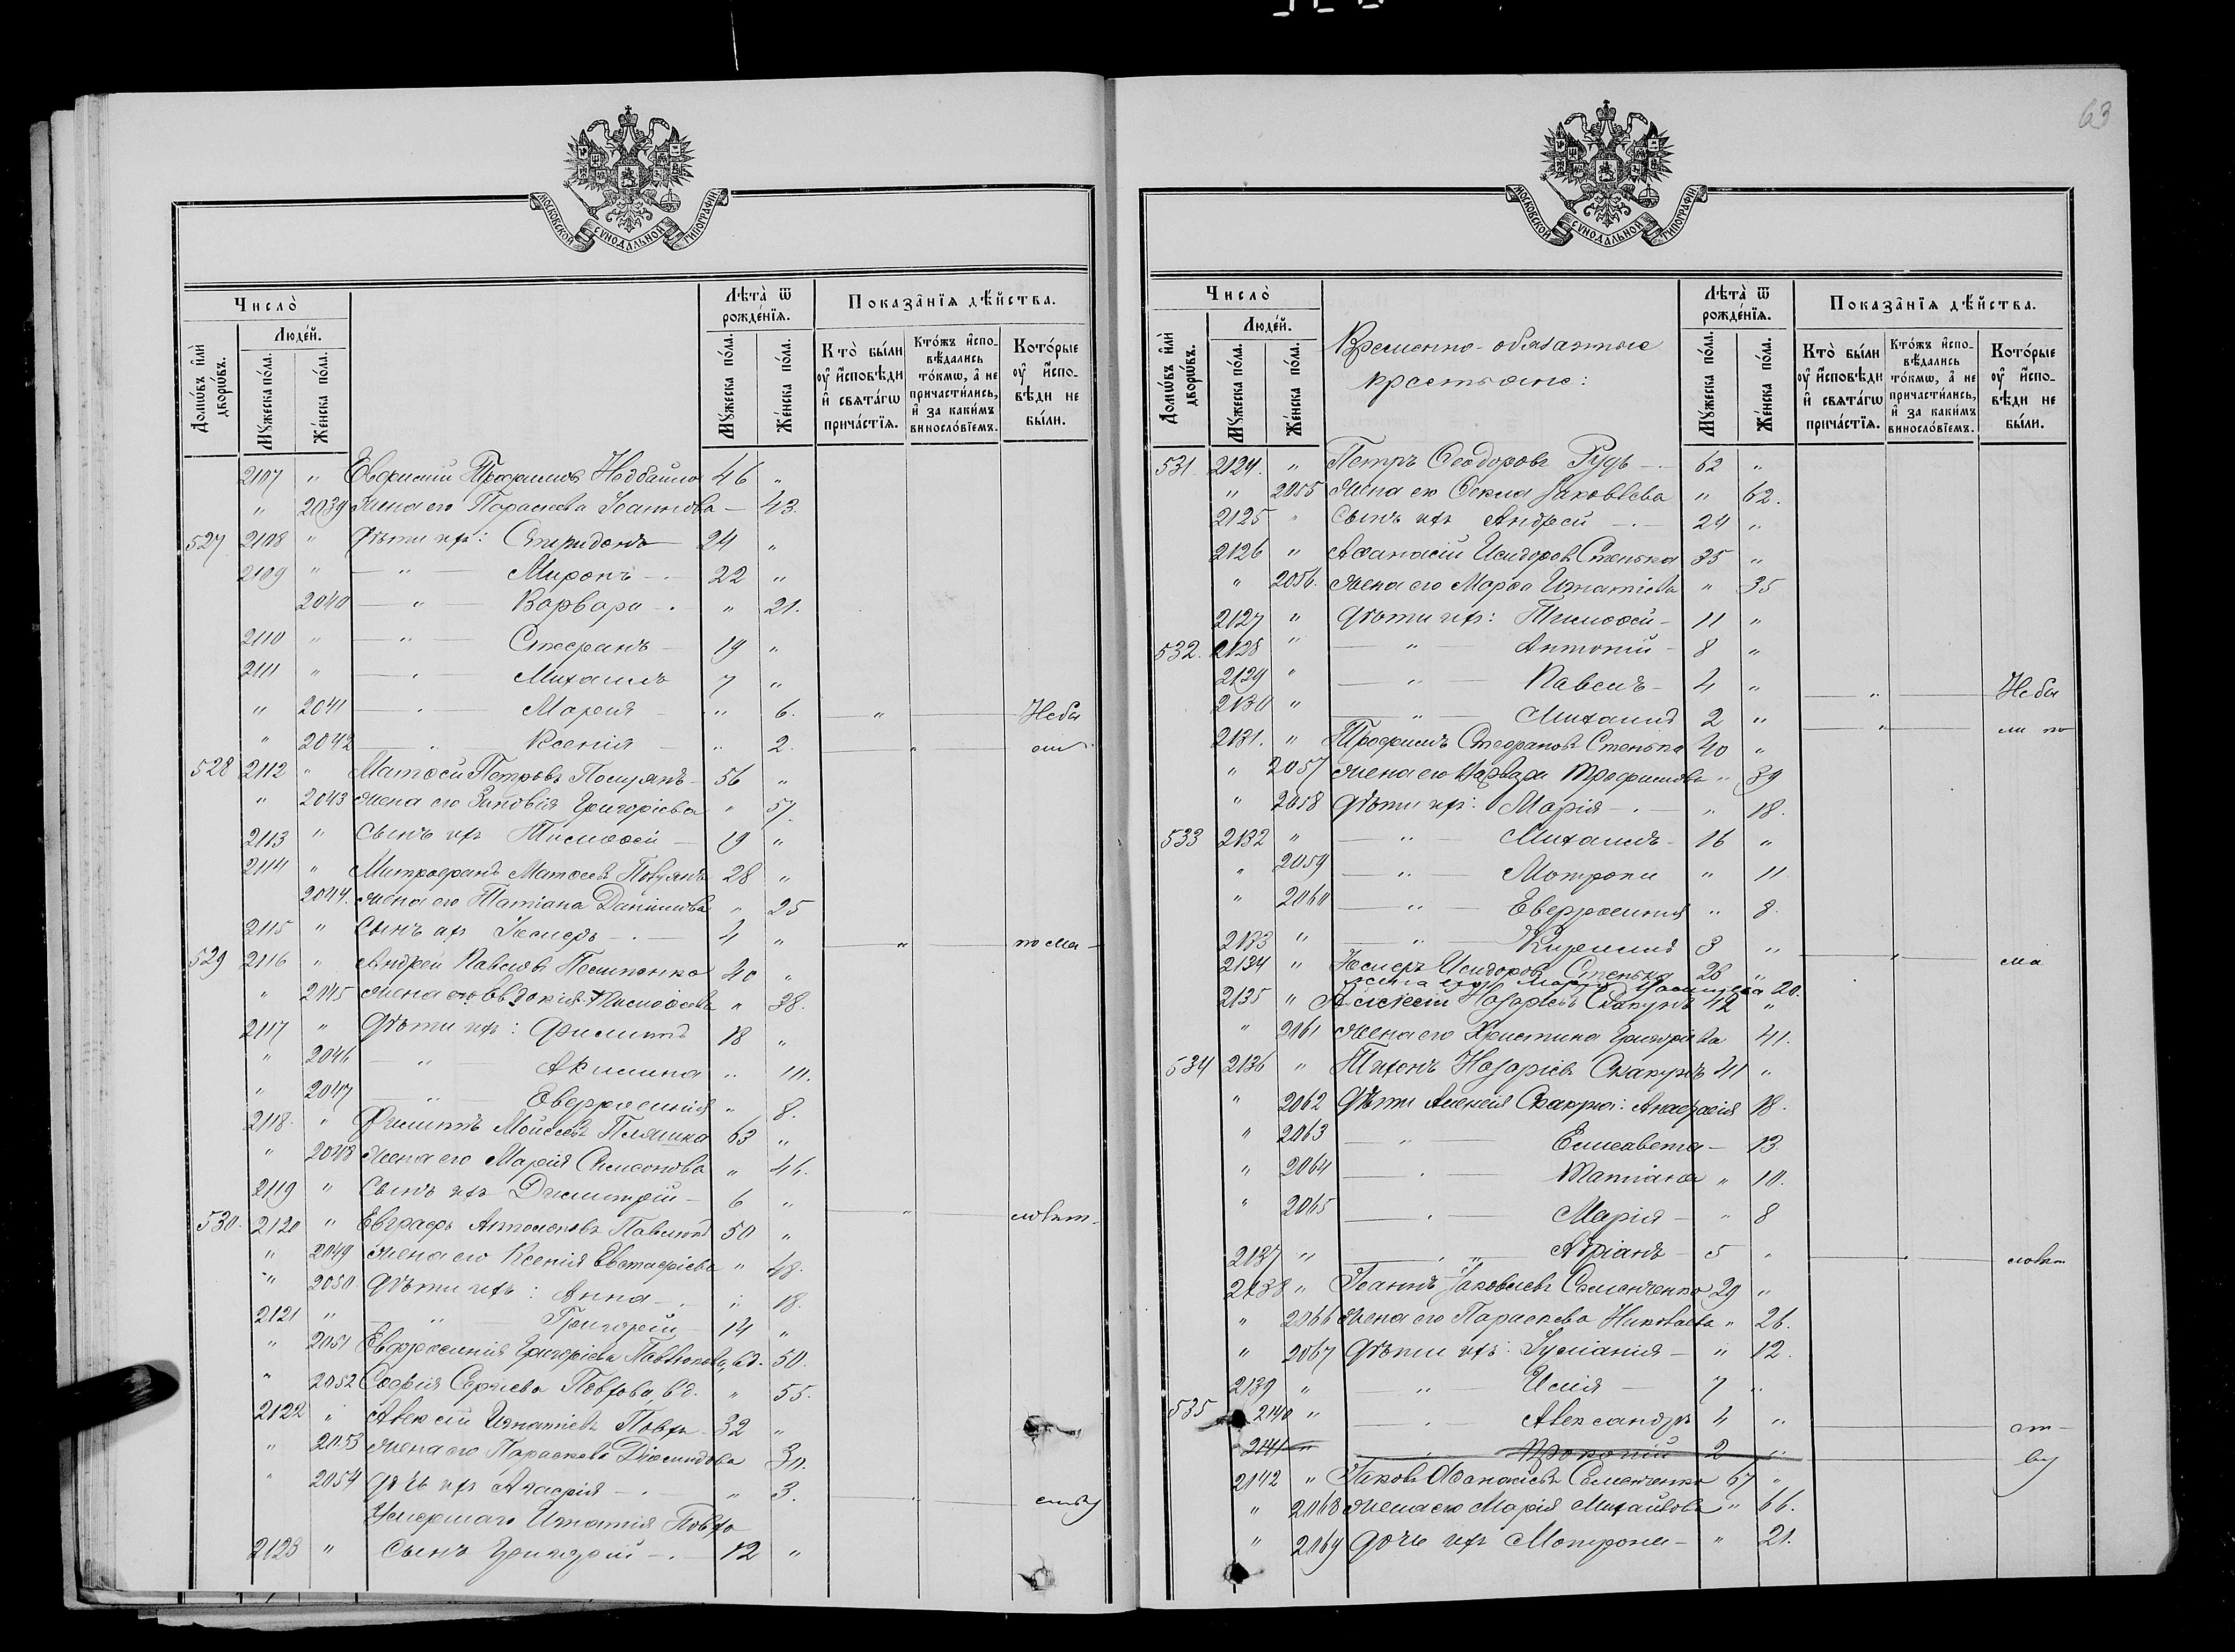 63
МОСКОВСКОЙ СѴНОДАЛЬНОЙ ТИПОГРАФІИ
Число̀
Людéй.
Домѡ́въ и҆лѝ дворѡ́въ.
Мꙋ́жеска по́ла.
Же́нска по́ла.
Лѣта̀ ѿ рожде́нїѧ.
Мꙋ́жеска по́ла.
Же́нска по́ла.
Показа̑нїѧ дѣ́йства.
Кто̀ бы́ли оу҆ и҆сповѣ́ди и҆ свѧта́гѡ прича́стїѧ.
Кто́жъ и҆сповѣ́дались то́кмѡ, а҆ не причасти́лись, и҆ за каки́мъ виносло́вїемъ.
Кото́рые оу҆ и҆сповѣ́ди не бы́ли.
2107 " Евфимій Трофимовъ 46 "
" 2039 Жена его Параскева Іоаннова — 43.
527 2108 " Дѣти ихъ: Спиридонъ 24 "
2109 " — " — Миронъ — 22 "
2040 — " — Варвара — " 21.
2110 " — " — Стефанъ — 19 "
2111 " — " — Михаилъ 7 "
" 2041 — " — Марія — " 6. — " — Небы
" 2042 — " — Ксенія " 2. — " —
528 2112 " Матѳей Петровъ 56 "
" 2043 Жена его Зиновія Григоріева " 57.
2113 " Сынъ ихъ Тимоѳей — 19 "
2114 " Митрофанъ Матѳеевъ 28 "
2044. Жена его Татіана Даніилова " 25
2115 " Сынъ ихъ — 4 " — " — по ма-
529 2116 " Андрей Павловъ 40 "
" 2045 Жена его Евдокія Тимоѳеева " 38.
2117 " Дѣти ихъ: Филиппъ 18 "
" 2046 — " — Акилина "
" 2047 — " — Евфросинія " 8.
2118. " Филиппъ Моисеевъ Пляшка 63 "
" 2048 Жена его Марія Симеонова " 46.
2119 " Сынъ ихъ Димитрій — 6 " — " — лолѣт-
530. 2120 " Евграфъ 50 "
" 2049 Жена его Ксенія Евстафіева " 48.
" 2050. Дѣти ихъ: Анна — " 18.
2121 " — " — Григорій — 14 "
" 2051 Евфросинія Григоріева вд. 50.
" 2052 Софія Сергіева вд. " 55.
2122 " Алексій Игнатіевъ 32 "
" 2053 Жена его Параскева Діомидова 30.
" 2054 Дочь ихъ — " 3. — " — ству
Умершаго Игнатія
2123 " Сынъ Григорій — 12 "
МОСКОВСКОЙ СѴНОДАЛЬНОЙ ТИПОГРАФІИ
Число̀
Людéй.
Домѡ́въ и҆лѝ дворѡ́въ.
Мꙋ́жеска по́ла.
Же́нска по́ла.
Временно-обязанные
крестьяне:
Лѣта̀ ѿ рожде́нїѧ.
Мꙋ́жеска по́ла.
Же́нска по́ла.
Показа̑нїѧ дѣ́йства.
Кто̀ бы́ли оу҆ и҆сповѣ́ди и҆ свѧта́гѡ прича́стїѧ.
Кто́жъ и҆сповѣ́дались то́кмѡ, а҆ не причасти́лись, и҆ за каки́мъ виносло́вїемъ.
Кото́рые оу҆ и҆сповѣ́ди не бы́ли.
531. 2124. " Петръ Ѳеодоровъ Рудь — 62 "
" 2055 Жена его Ѳекла Іаковлева " 62.
2125 " Сынъ ихъ Андрей — 24 "
2126 " Аѳанасій Исидоровъ Стенька 35 "
" 2056. Жена его Марѳа Игнатіева " 35
2127 " Дѣти ихъ: Тимоѳей — 11 "
532. 2128 " — " — Антоній — 8 "
2129 " — " — Павелъ — 4 " — " — Небы
2130 " — " — Михаилъ 2 " — " — ли по
2131. " Трофимъ Стефановъ Стенька 40 "
" 2057 Жена его Варвара Трофимова " 39
" 2058 Дѣти ихъ: Марія — " 18.
533 2132 " — " — Михаилъ — 16 "
" 2059 — " — Матрона " 11
" 2060 — " — Евфросинія " 8.
2133 " — " — Кириллъ 3 " — " — ма
2134 " Исидоровъ Стенька 28 "
Жена его Марія 20.
2135 " Алексій Назаріевъ Скакунъ 42 "
" 2061 Жена его Христина Григоріева 41.
534 2136 " Тихонъ Назаріевъ Скакунъ 41 "
" 2062 Дѣти Алексія Скакуна: 18.
" 2063 — " — Елисавета — 13.
" 2064 — " — Татіана " 10.
" 2065 — " — Марія — " 8
2137 " — " — Адріанъ — 5 " — " — лолѣт
2138 " Іоаннъ Іаковлевъ Семенченко 29 "
" 2066 Жена его Параскева Николаева " 26.
" 2067 Дѣти ихъ: Іуліанія — " 12.
2139 " — " — Илія — 7 "
535 2140 " — " — Александръ 4 " — ст-
2141 " — " — 2 " — ву
2142 " Іаковъ Аѳанасіевъ Семенченко 67 "
" 2068 Жена его Марія Михайлова " 66.
" 2069 Дочь ихъ Матрона — " 21.